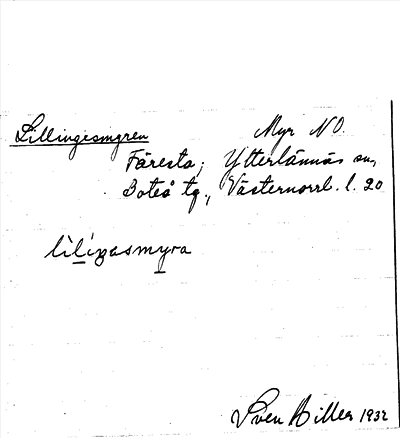 Lillingesmyren Myr NO.
Färesta; Ytterlännäs sn,
Boteå tg., Västernorrl. l. 20
lilingasmyra
Sven Hillea 1932